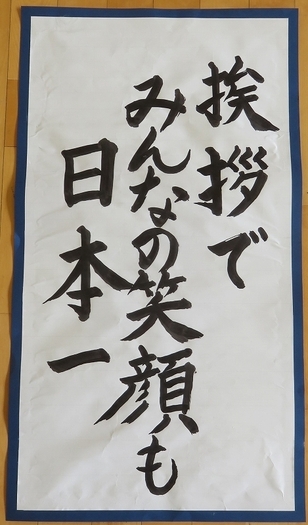 挨拶で
みんなの笑顔も
日本一